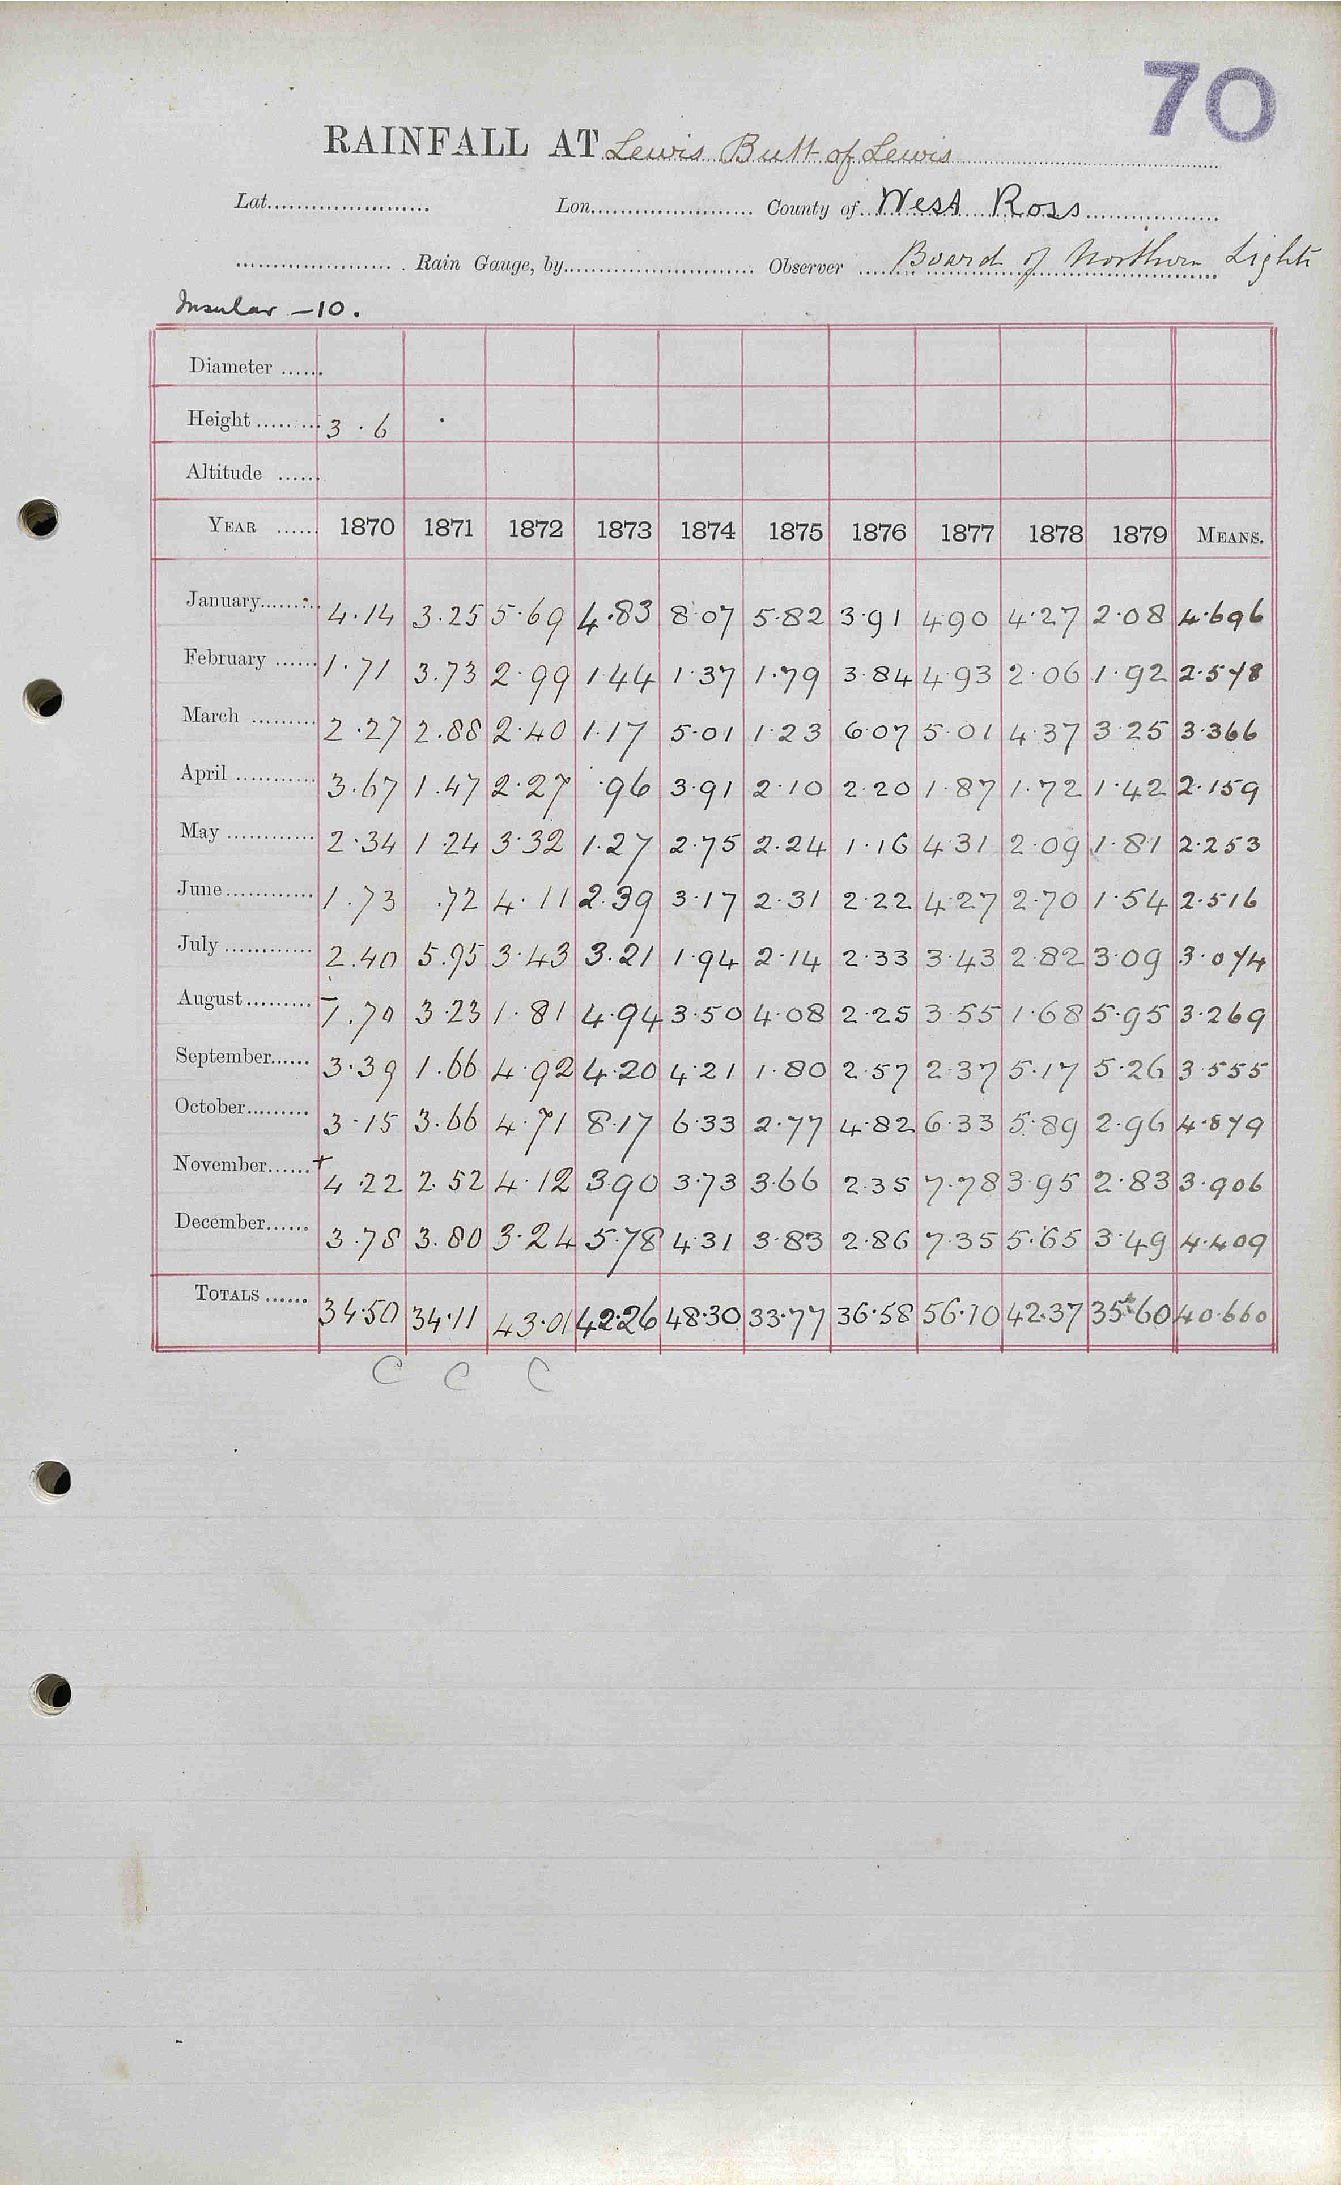 70
RAINFALL AT Lewis Butt of Lewis
Lat. Lon. County of West Ross
Rain Gauge, by Observer Board of Northern Lights
Insular - 10.
Diameter
Height 3.6
Altitude
YEAR 1870 1871 1872 1873 1874 1875 1876 1877 1878 1879 MEANS.
January 4.14 3.25 5.69 4.83 8.07 5.82 3.91 4.90 4.27 2.08 4.696
February 1.71 3.73 2.99 1.44 1.37 1.79 3.84 4.93 2.06 1.92 2.578
March 2.27 2.88 2.40 1.17 5.01 1.23 6.07 5.01 4.37 3.25 3.366
April 3.67 1.47 2.27 .96 3.91 2.10 2.20 1.87 1.72 1.42 2.159
May 2.34 1.24 3.32 1.27 2.75 2.24 1.16 4.31 2.09 1.81 2.253
June 1.73 .72 4.11 2.39 3.17 2.31 2.22 4.27 2.70 1.54 2.516
July 2.40 5.95 3.43 3.21 1.94 2.14 2.33 3.43 2.82 3.09 3.074
August 1.70 3.23 1.81 4.94 3.50 4.08 2.25 3.55 1.68 5.95 3.269
September 3.39 1.66 4.92 4.20 4.21 1.80 2.57 2.37 5.17 5.26 3.555
October 3.15 3.66 4.71 8.17 6.33 2.77 4.82 6.33 5.89 2.96 4.879
November + 4.22 2.52 4.12 3.90 3.73 3.66 2.35 7.78 3.95 2.83 3.906
December 3.78 3.80 3.24 5.78 4.31 3.83 2.86 7.35 5.65 3.49 4.409
TOTALS 34.50 34.11 43.01 42.26 48.30 33.77 36.58 56.10 42.37 35.60 40.660
C C C